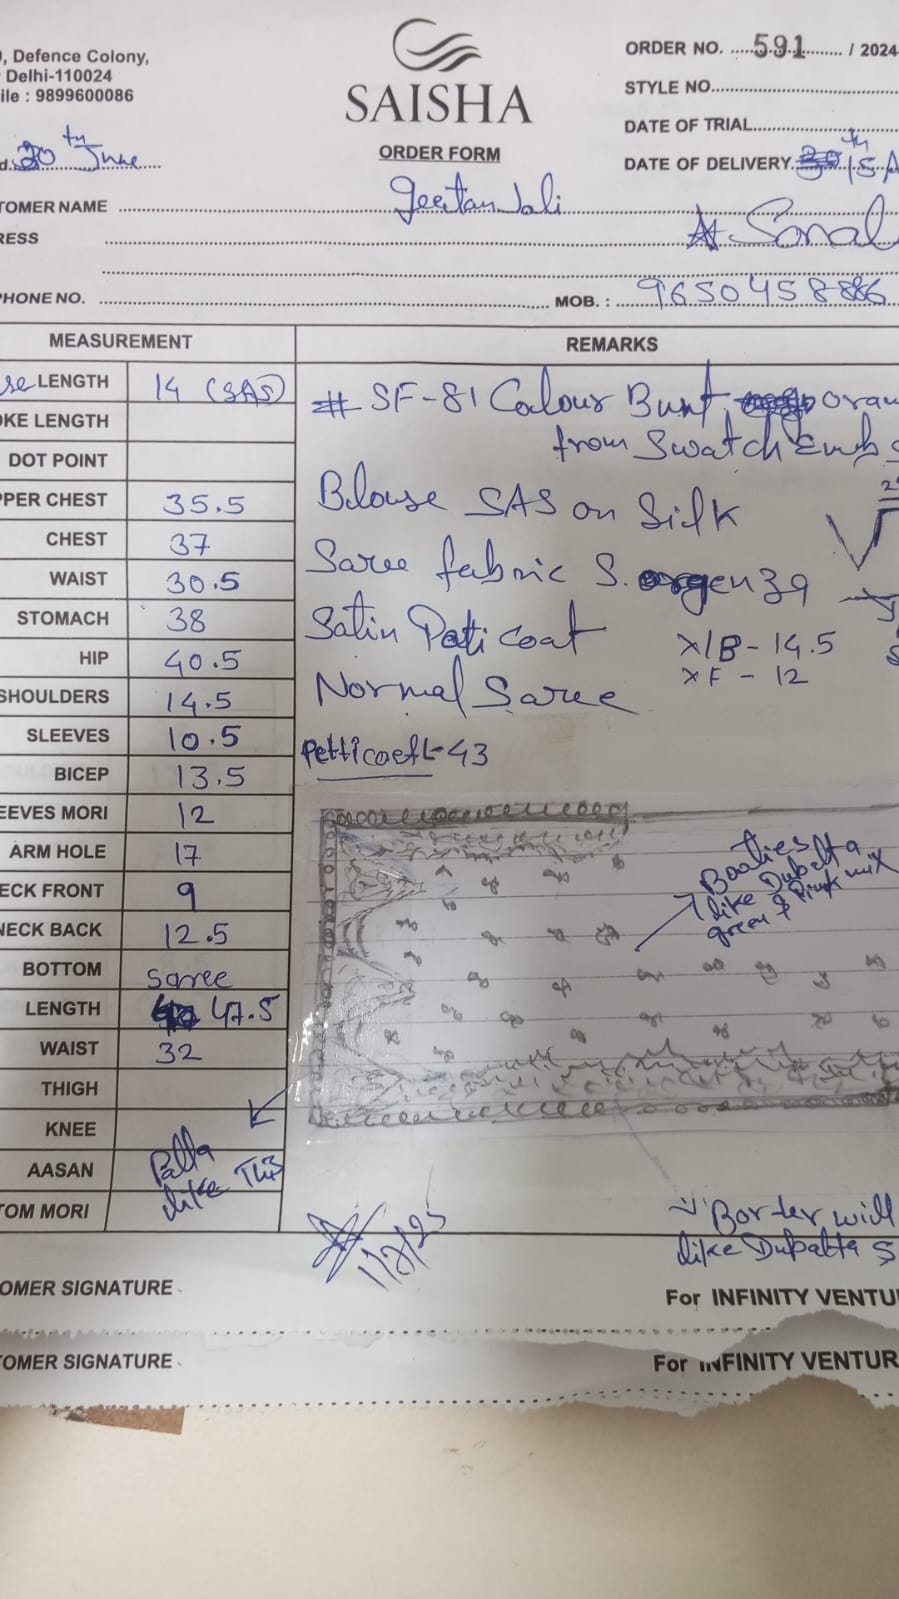 , Defence Colony,
Delhi-110024
ile : 9899600086
SAISHA
ORDER FORM
ORDER NO. 591 / 2024
STYLE NO.
DATE OF TRIAL
DATE OF DELIVERY 15
20th June
TOMER NAME geetanjali
RESS Sonal
PHONE NO. MOB. : 9650458886
MEASUREMENT REMARKS
LENGTH 14 (SAS)
KE LENGTH
DOT POINT
PPER CHEST 35.5
CHEST 37
WAIST 30.5
STOMACH 38
HIP 40.5
SHOULDERS 14.5
SLEEVES 10.5
BICEP 13.5
EEVES MORI 12
ARM HOLE 17
ECK FRONT 9
NECK BACK 12.5
BOTTOM Saree
LENGTH 47.5
WAIST 32
THIGH
KNEE
AASAN
TOM MORI
Palla
like This
# SF-81 Colour Bunt oran
from Swatch Emb
Blouse SAS on Silk
Saree fabric S. orgenza
Satin Peticoat
X/B - 14.5
XF - 12
Normal Saree
Petticoat-43
Booties
like Dubatta
green & Pink mix
1/2/25
Border will
like Dubatta S
OMER SIGNATURE
For INFINITY VENTU
OMER SIGNATURE
For INFINITY VENTUR